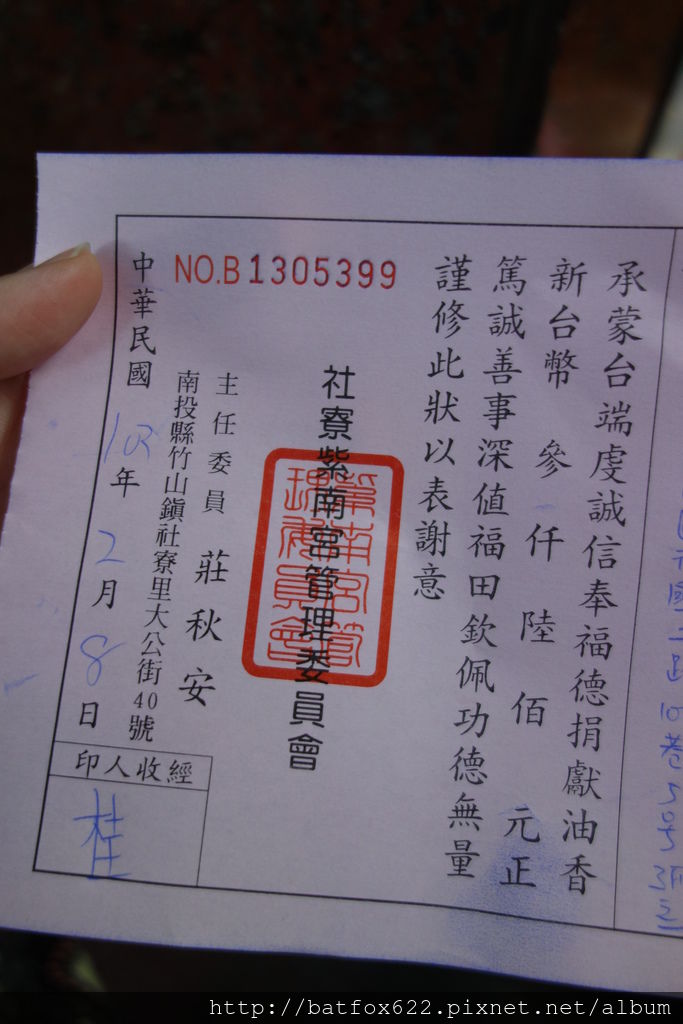 承蒙台端虔誠信奉福德捐獻油香
新台幣 參仟陸佰 元正
篤誠善事深值福田欽佩功德無量
謹修此狀以表謝意
社寮紫南宮管理委員會
紫南宮管
理委員會
NO.B 1305399
主任委員 莊秋安
南投縣竹山鎮社寮里大公街40號
中華民國 103年 2月 8日
經收人印
桂
http://batfox622.pixnet.net/album